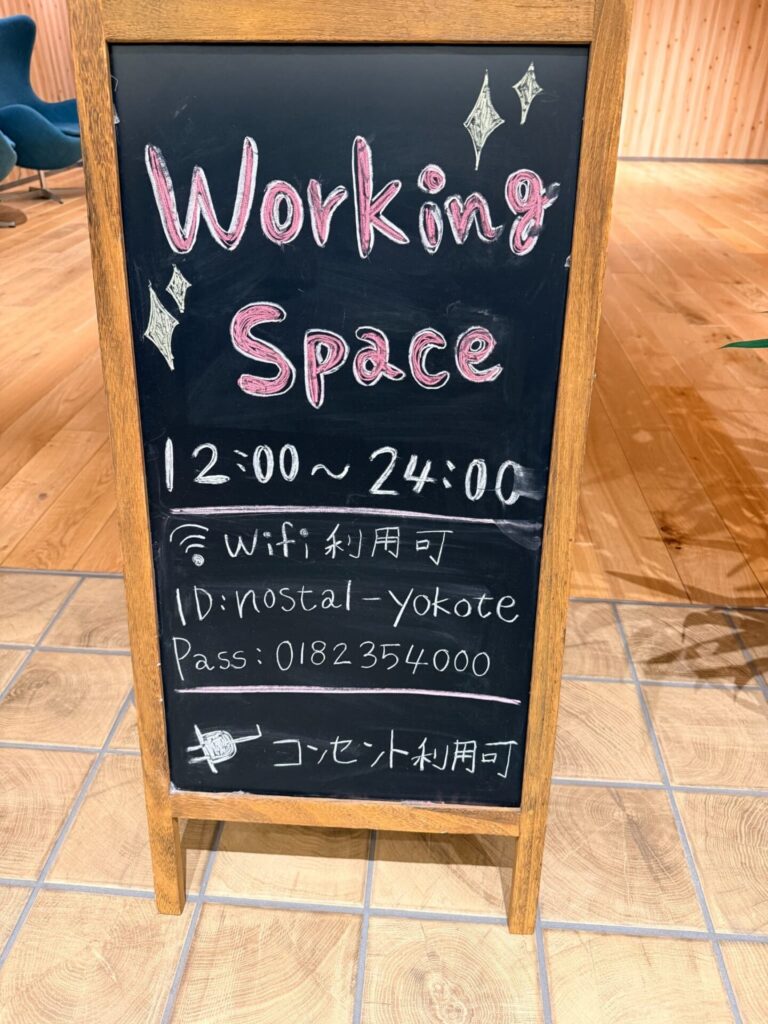 Working
Space
12:00～24:00
Wifi 利用可
ID:nostal-yokote
Pass:0182354000
コンセント利用可